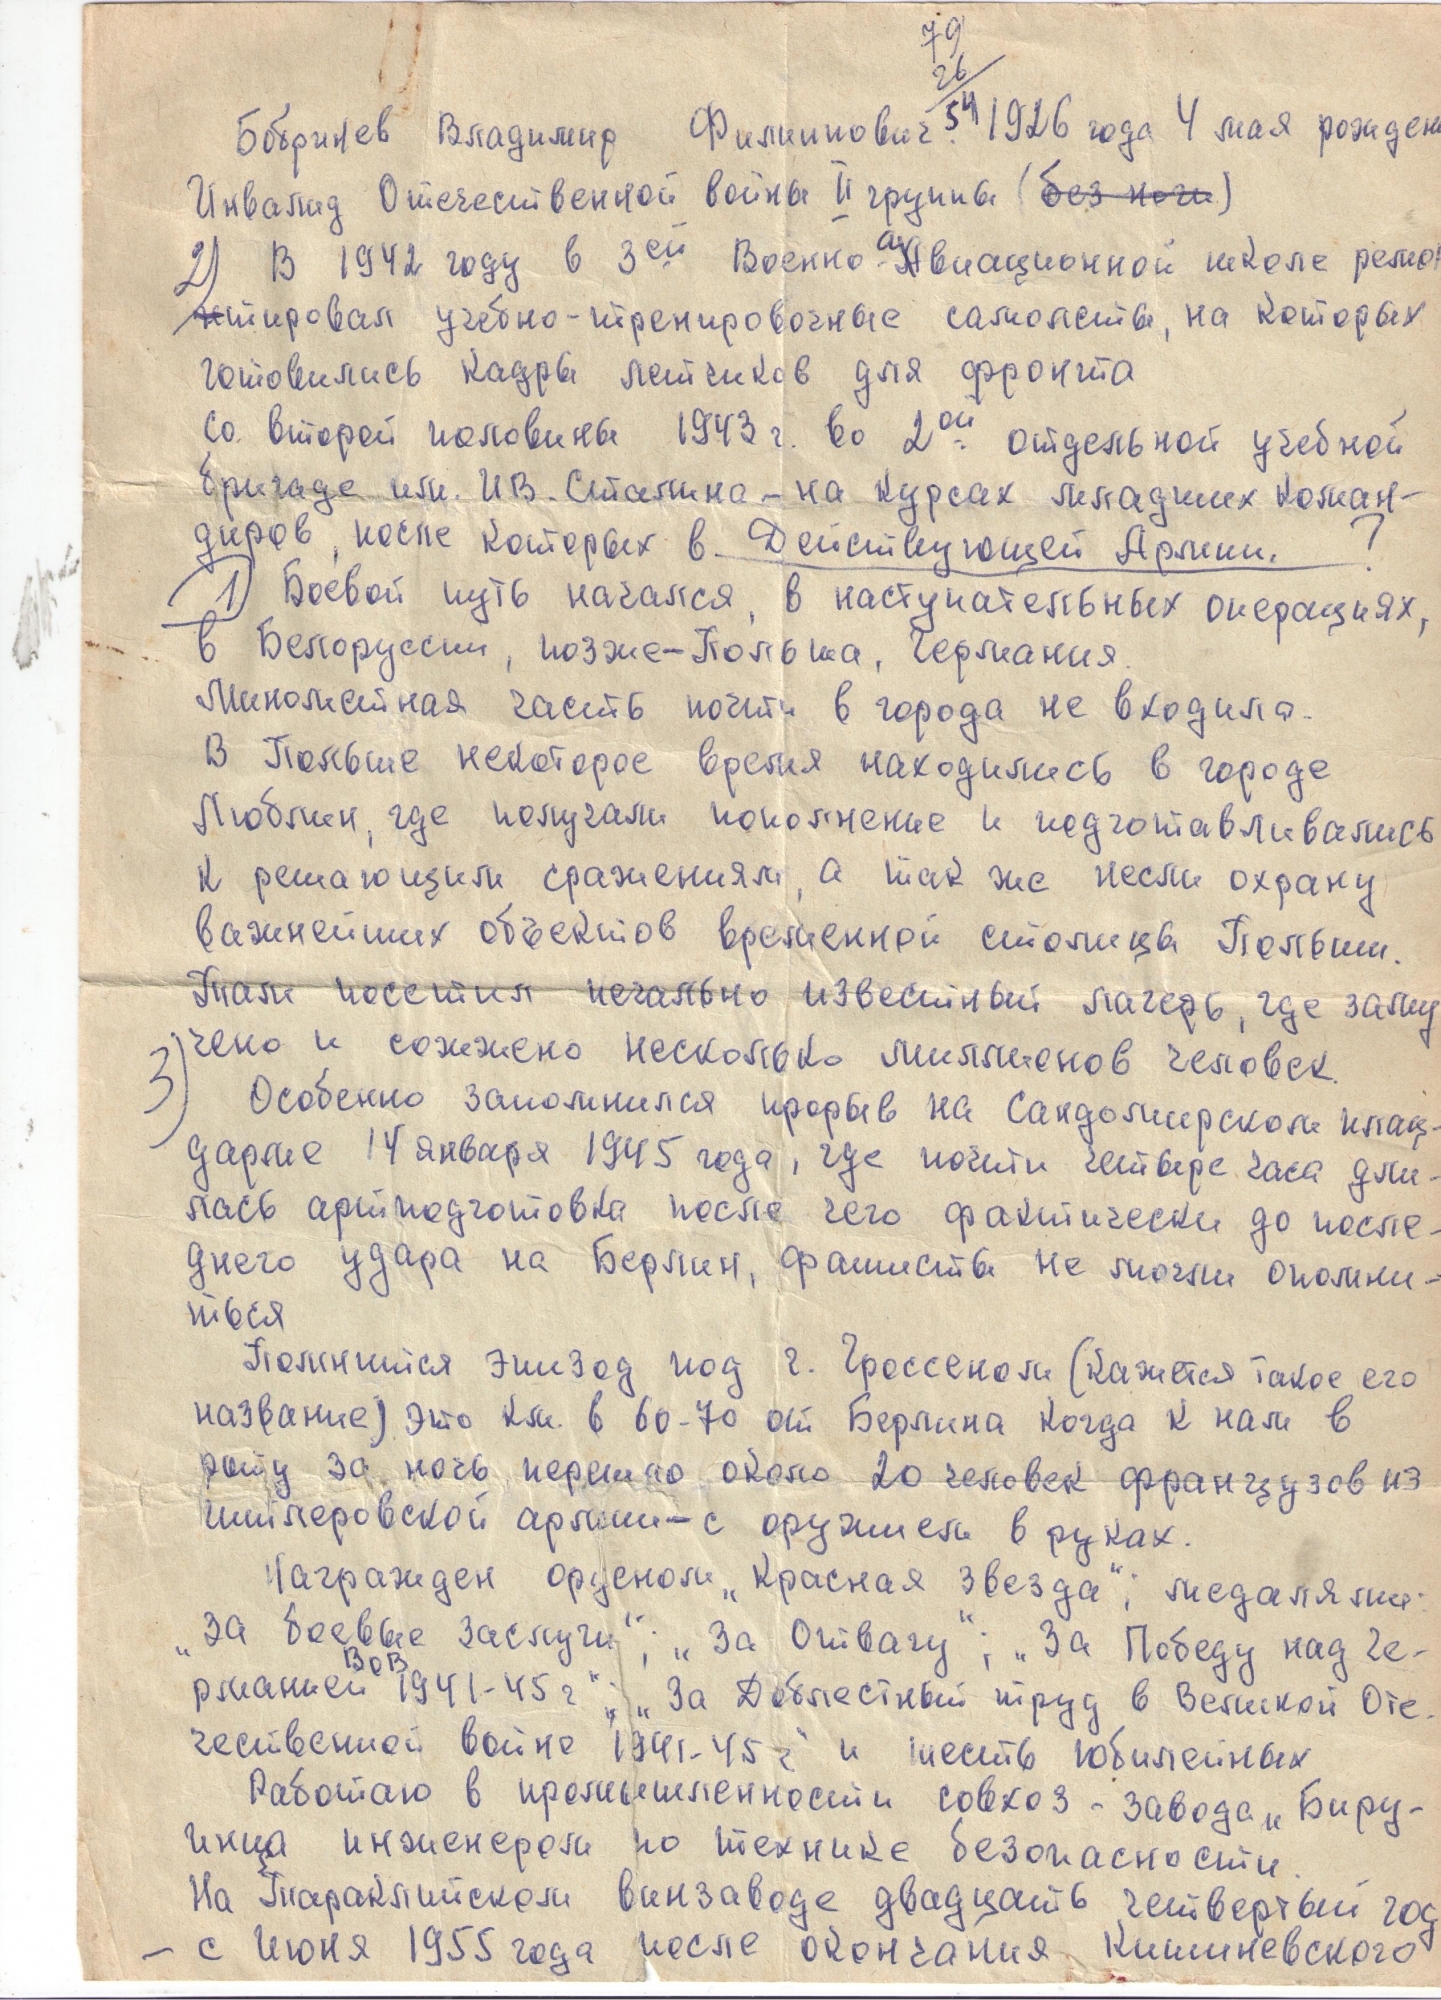 79
26
54
Бобринев Владимир Филиппович. 1926 года 4 мая рожден
Инвалид Отечественной войны II группы (без ноги)
2) В 1942 году в 3ей Военно-Авиационной школе ремон
нтировал учебно-тренировочные самолеты, на которых
готовились кадры летчиков для фронта
Со второй половины 1943 г. во 2ой отдельной учебной
бригаде им. И.В. Сталина – на курсах младших коман-
диров, после которых в Действующей Армии. ?
1) Боевой путь начался, в наступательных операциях,
в Белоруссии, позже – Польша, Германия.
Минометная часть почти в города не входила.
В Польше некоторое время находились в городе
Люблин, где получали пополнение и подготавливались
к решающим сражениям, а так же несли охрану
важнейших объектов временной столицы Польши.
Там посетил печально известный лагерь, где заму
чено и сожжено несколько миллионов человек.
3) Особенно запомнился прорыв на Сандомирском плац-
дарме 14 января 1945 года, где почти четыре часа дли-
лась артподготовка после чего фактически до после-
днего удара на Берлин, фашисты не могли опомни-
ться
Помнится эпизод под г. Гроссеном (кажется такое его
название) это км. в 60-70 от Берлина когда к нам в
роту за ночь перешло около 20 человек французов из
гитлеровской армии – с оружием в руках.
Награжден орденом „Красная Звезда“; медалями:
„За боевые заслуги“; „За Отвагу“; „За Победу над Ге-
рманией ВОВ 1941-45 г“; „За Доблестный труд в Великой Оте-
чественной войне 1941-45 г“ и шесть юбилейных
Работаю в промышленности совхоз-завода „Биру-
инца инженером по технике безопасности.
На Тараклийском винзаводе двадцать четвертый год
– с Июня 1955 года после окончания Кишиневского